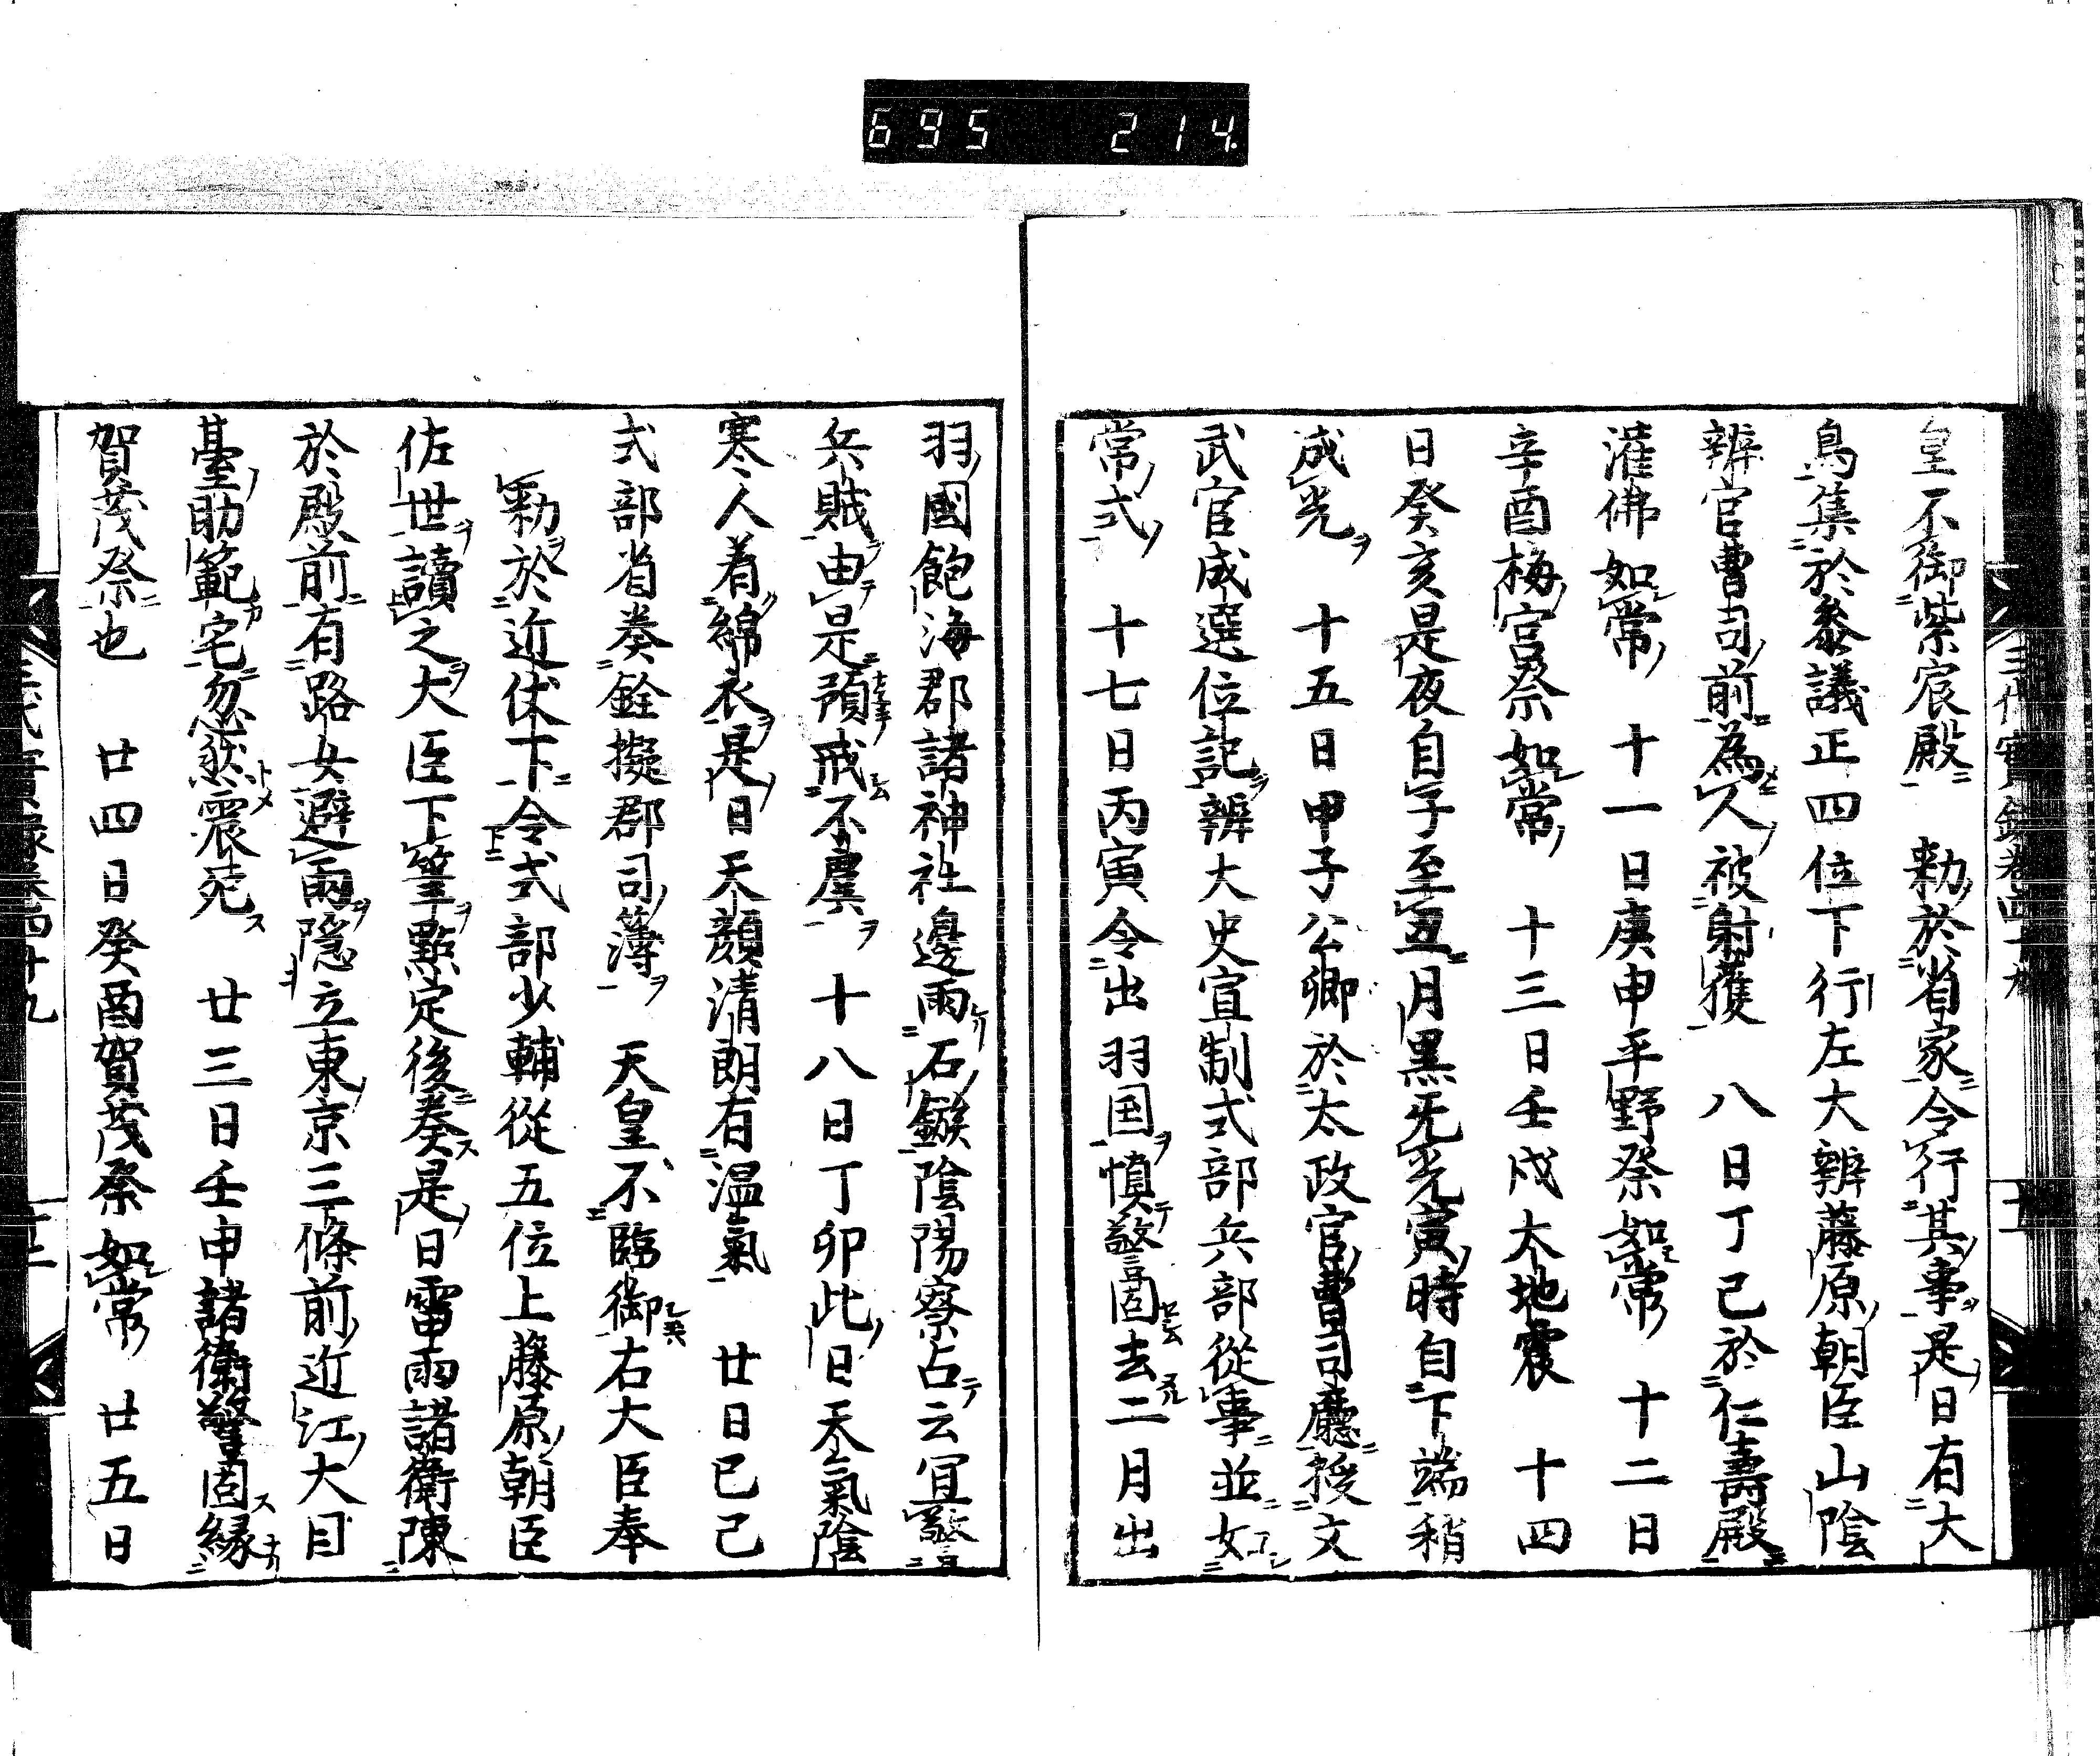 695 214
皇不御紫宸殿 勅於省家令行其事是日有大
鳥集於参議正四位下行左大辨藤原朝臣山陰
辨官曹司前為人被射獲 八日丁己於仁壽殿
灌佛如常 十一日庚申平野祭如常 十二日
辛酉梅宮祭如常 十三日壬戌大地震 十四
日癸亥是夜自子至丑月黒无光寅時自下端稍
成光 十五日甲子公卿於太政官曹司廳授文
武官成選位記辨大史宣制式部兵部從事並如
常式 十七日丙寅令出羽国慎警固去二月出
羽國飽海郡諸神社邊雨石鏃陰陽寮占云宜警
兵賊由是預戒不虞 十八日丁卯此日天氣陰
寒人着綿衣是日天顔清朗有温氣 廿日己己
式部省奏銓擬郡司簿 天皇不臨御右大臣奉
勅於近伏下令式部少輔從五位上藤原朝臣
佐世讀之大臣下筆點定後奏是日雷雨諸衛陳
於殿前有路女避雨隠立東京三條前近江大目
甚臺助範宅忽然震死 廿三日壬申諸衛警固縁
賀茂祭也 廿四日癸酉賀茂祭如常 廿五日
三代實録巻四十九